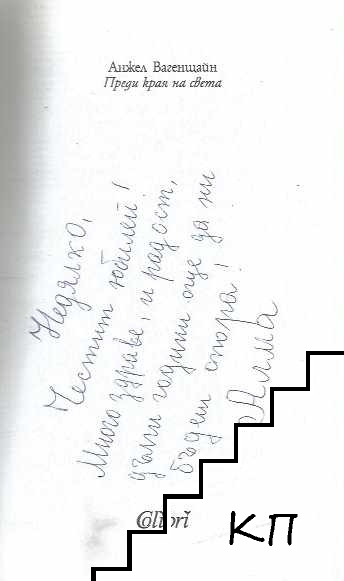 Анжел Вагенщайн
Преди края на света
Недялко,
Честит юбилей!
Много здраве, и радост,
дълги години още да ни
бъдеш опора!
Алма
Colibri
КП